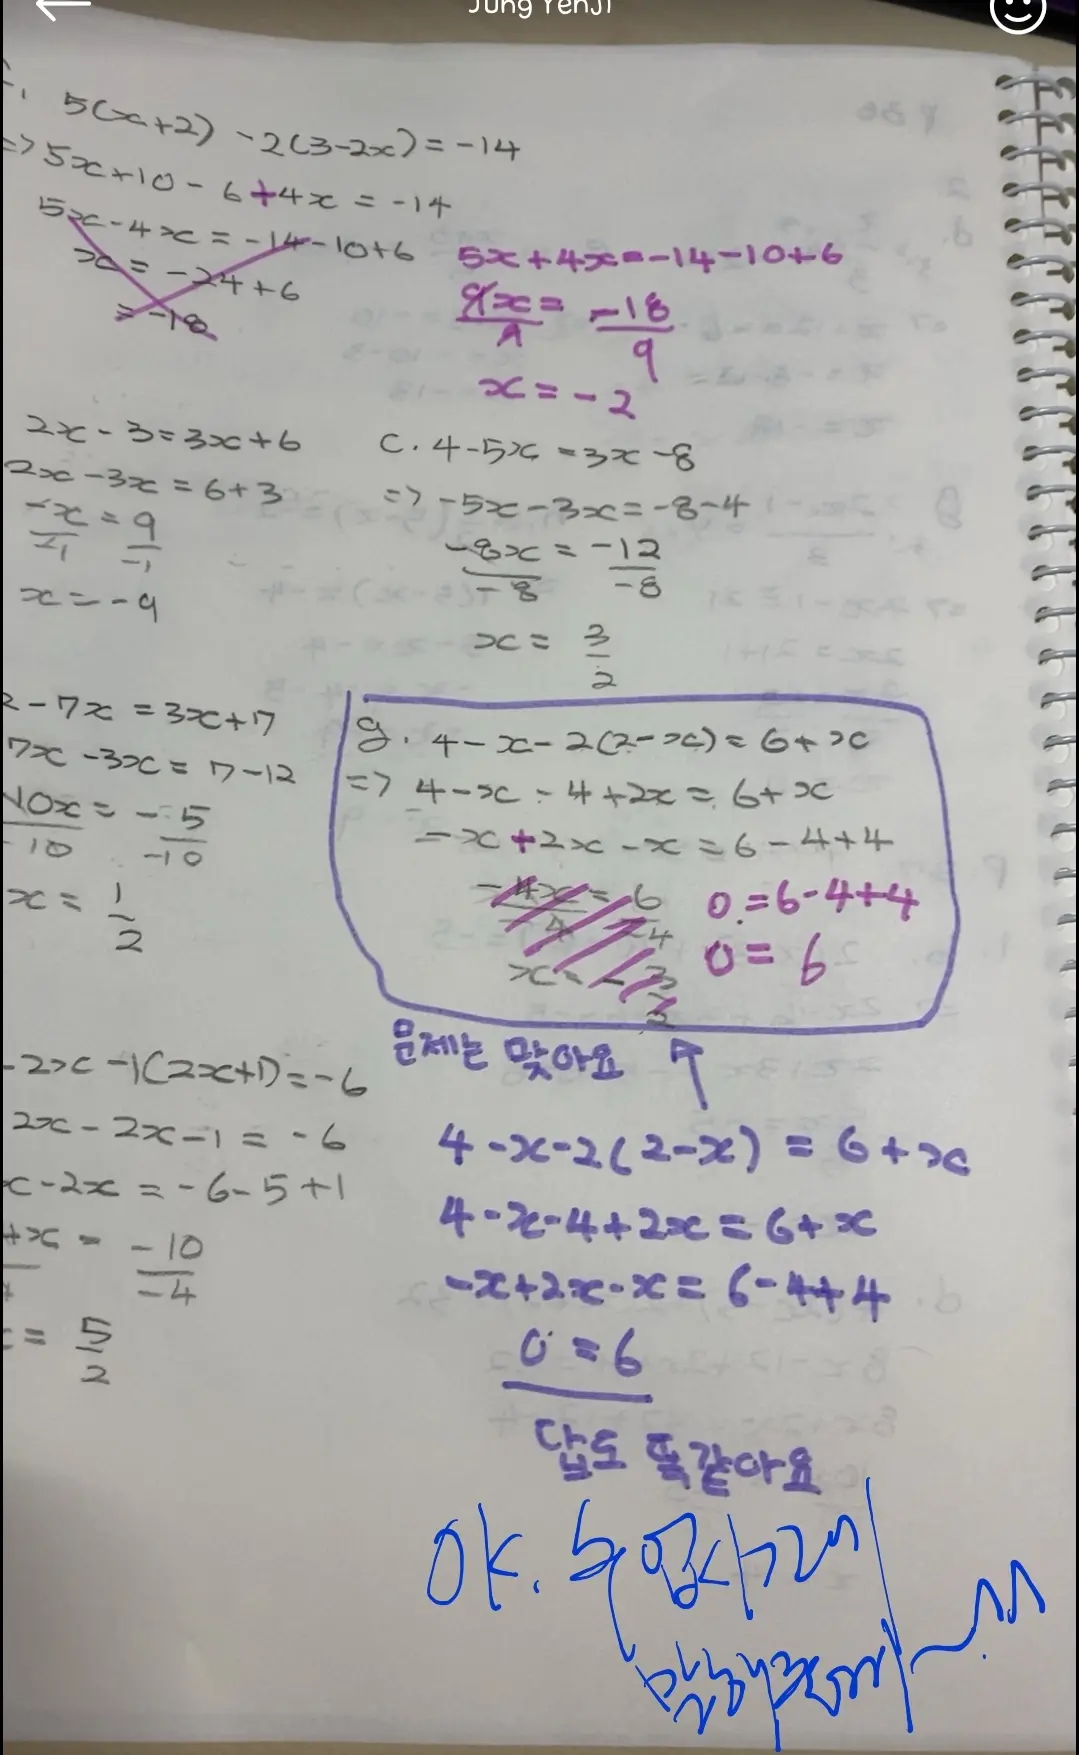 Jung YenJi
5(x+2) -2(3-2x) = -14
=> 5x+10 - 6+4x = -14
5x-4x = -14-10+6
x = -24+6
= -18
5x+4x=-14-10+6
9x = -18
9 9
x = -2
2x - 3 = 3x+6
2x -3x = 6+3
-x = 9
-1 -1
x = -9
c. 4-5x = 3x -8
=> -5x-3x = -8-4
-8x = -12
-8 -8
x = 3
2
2 - 7x = 3x+7
7x -3x = 7-12
10x = -5
-10 -10
x = 1
2
g. 4-x-2(2-x) = 6+x
=> 4-x-4+2x = 6+x
-x+2x-x = 6-4+4
-4x = 6
-4 -4
x = - 3
2
0 = 6-4+4
0 = 6
문제는 맞아요
-2x -1(2x+1) = -6
2x - 2x-1 = -6
x-2x = -6-5+1
x = -10
-4
= 5
2
4-x-2(2-x) = 6+x
4-x-4+2x = 6+x
-x+2x-x = 6-4+4
0 = 6
답도 똑같아요
OK.